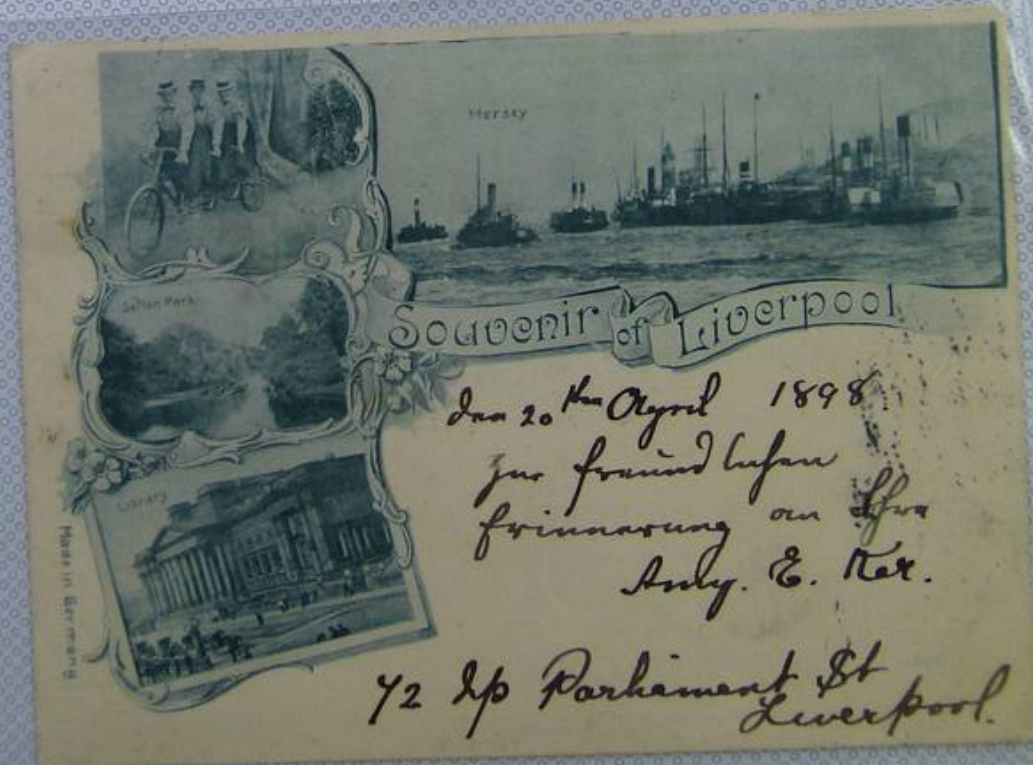 Mersey
Sefton Park
Souvenir of Liverpool
Library
Made in Germany
den 20ten April 1898
zur freundlichen
Erinnerung an Ihre
Amy. E. Ker.
72 Up Parliament St
Liverpool.